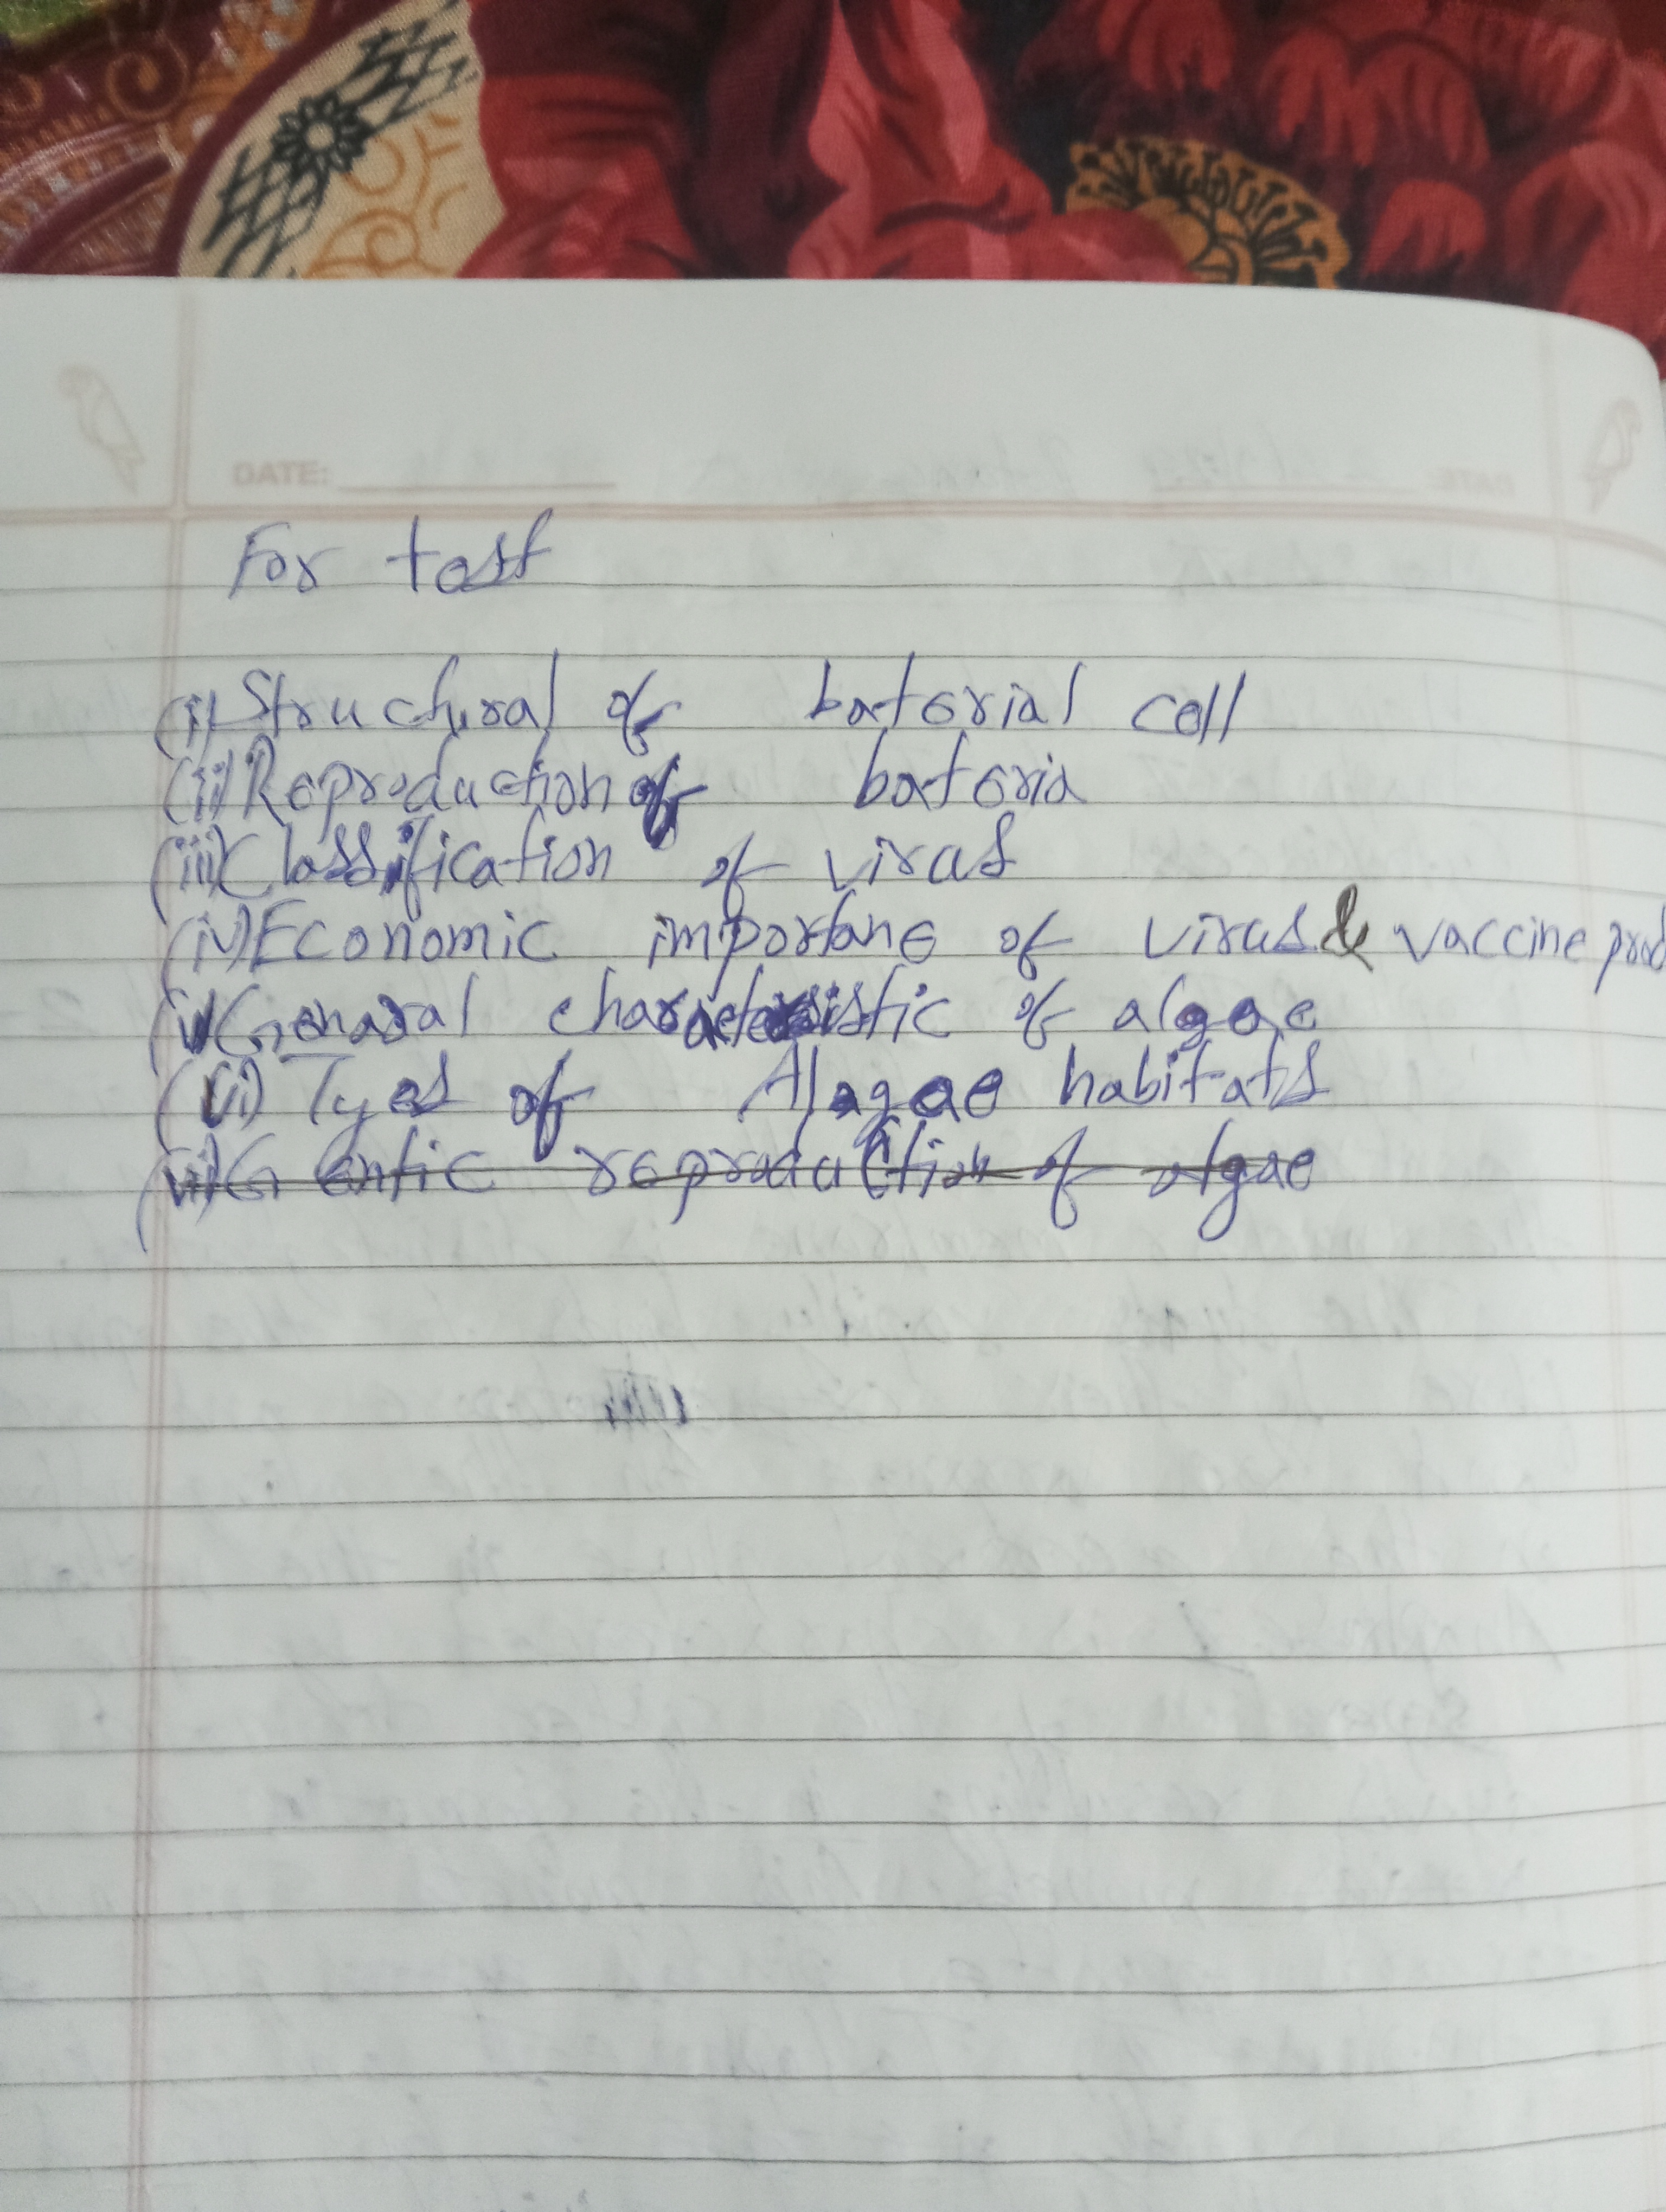 DATE:
For test
(i) Structural of baterial cell
(ii) Reproduction of bateria
(iii) Classification of virus
(iv) Economic importane of virus & vaccine prod
(v) Genaral characteristic of algae
(vi) Tyes of Alagae habitats
(vii) Gentic reproduction of algae